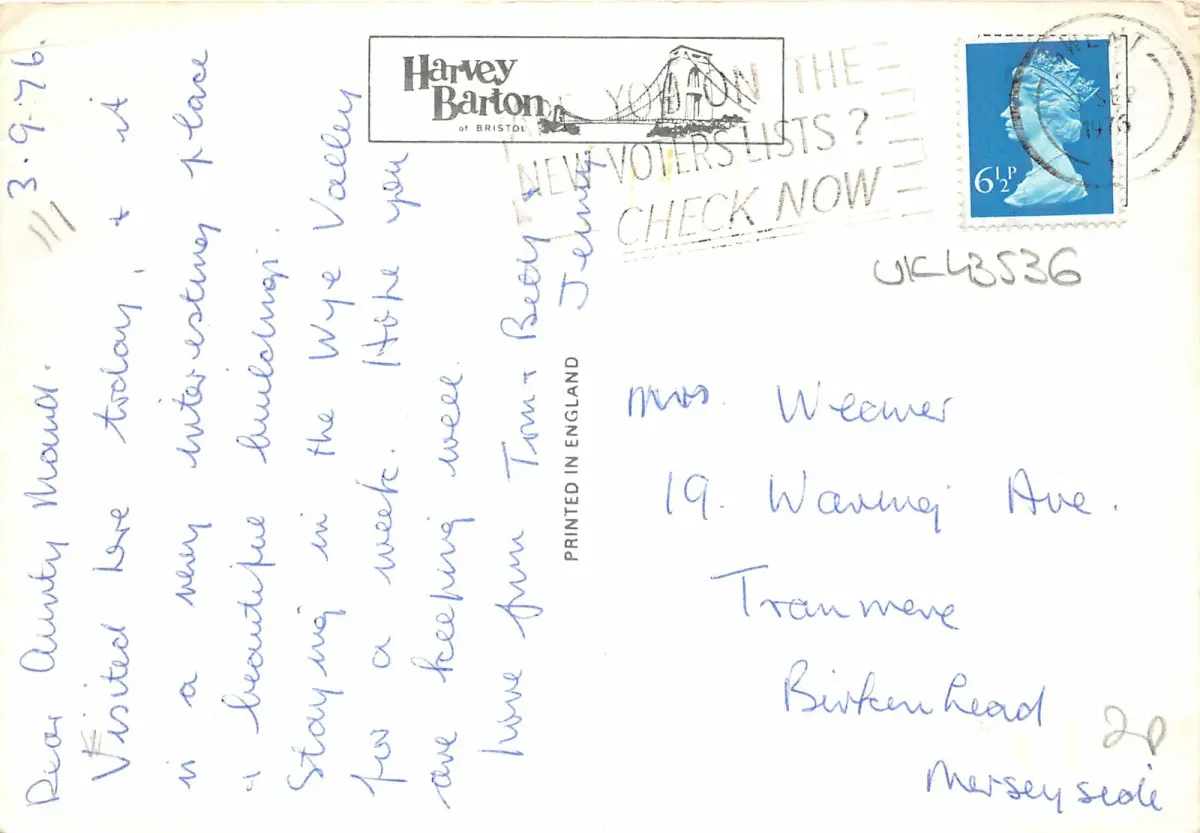 3.9.76.
Dear Aunty Maud.
Visited here today, & it
is a very interesting place
& beautiful buildings.
Staying in the Wye Valley
for a week. Hope you
are keeping well.
Love from Tom & Betty &
Jenny
Harvey
Barton
of BRISTOL
YOU ON THE
NEW VOTERS LISTS?
CHECK NOW
GWENT
SEP
1976
6½P
UK43536
PRINTED IN ENGLAND
Mrs. Weaver
19. Waring Ave.
Tranmere
Birkenhead
Merseyside
20